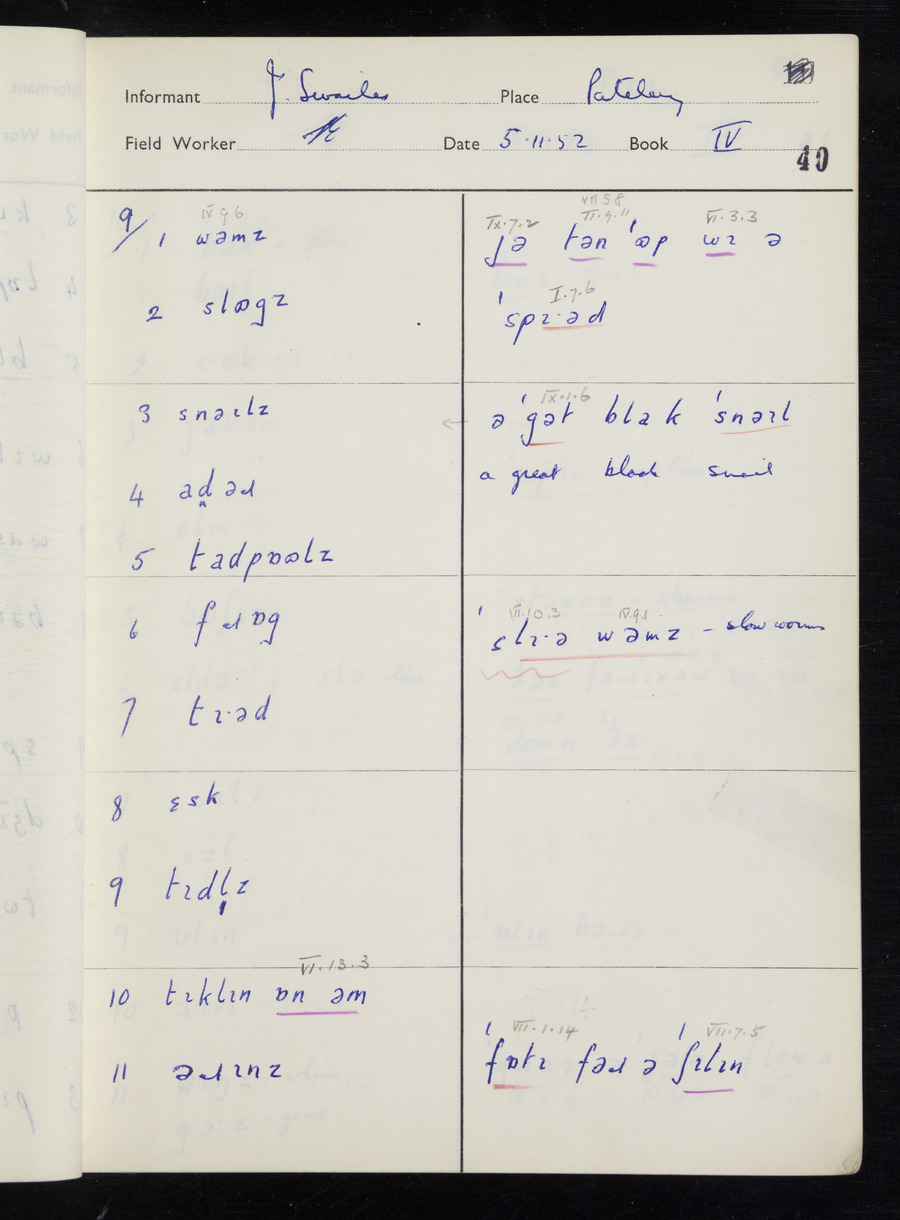 Informant J. Swailes Place Pateley
Field Worker Date 5.11.52 Book IV
40
IV 9 6
9/ 1 wəmz
2 slɷgz
3 snəɪlz
4 ad̪əɹ
5 tadpɒɷlz
6 fɹɒg
7 tɪ·əd
8 ɛsk
9 tɪdl̩z
VI.13.3
10 tɪklɪn ɒn əm
11 əɹɪnz
VII 5 8
IX.7.2 VI.9.11 VI.3.3
ʃə tən ˈɷp wɪ ə
I.7.6
ˈspɪ·əd
IX.1.6
← ə ˈgət blak ˈsnəɪl
a great black snail
VI.10.3 IV.9.1
ˈslɪ·ə wəmz – slow worms
VII.1.14 VII.7.5
ˈfɒtɪ fəɹ ə ˈʃɪlɪn